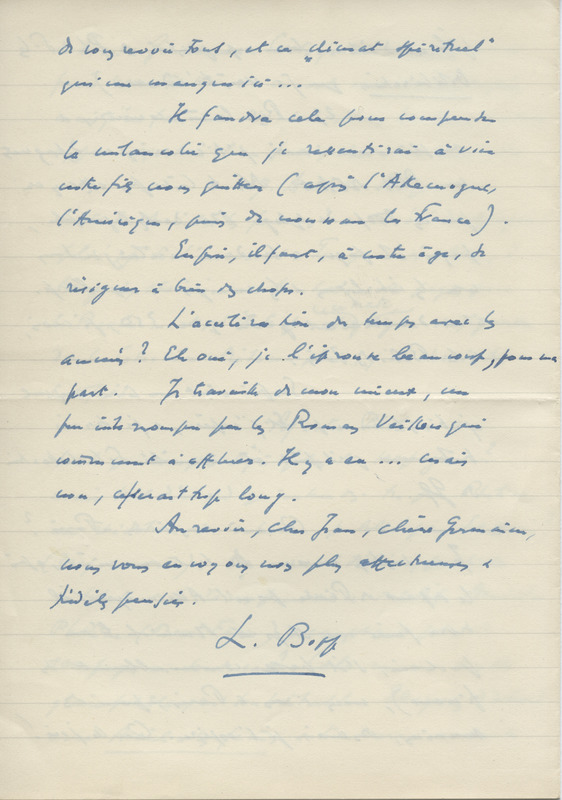 de vous revoir tous, et ce "climat spirituel"
qui me manque ici...
Il faudra cela pour compenser
la mélancolie que je ressentirai à voir
notre fils nous quitter (après l'Allemagne,
l'Amérique, puis de nouveau la France).
Enfin, il faut, à notre âge, se
résigner à bien des choses.
L'accélération du temps avec les
années? Eh oui, je l'éprouve beaucoup, pour ma
part. Je travaille de mon mieux, un
peu interrompu par les Romans qui
continuent à affluer. Il y a eu... mais
non, ce serait trop long.
Au revoir, cher Jean, chère Germaine,
nous vous envoyons nos plus affectueuses &
fidèles pensées.
L. Bopp